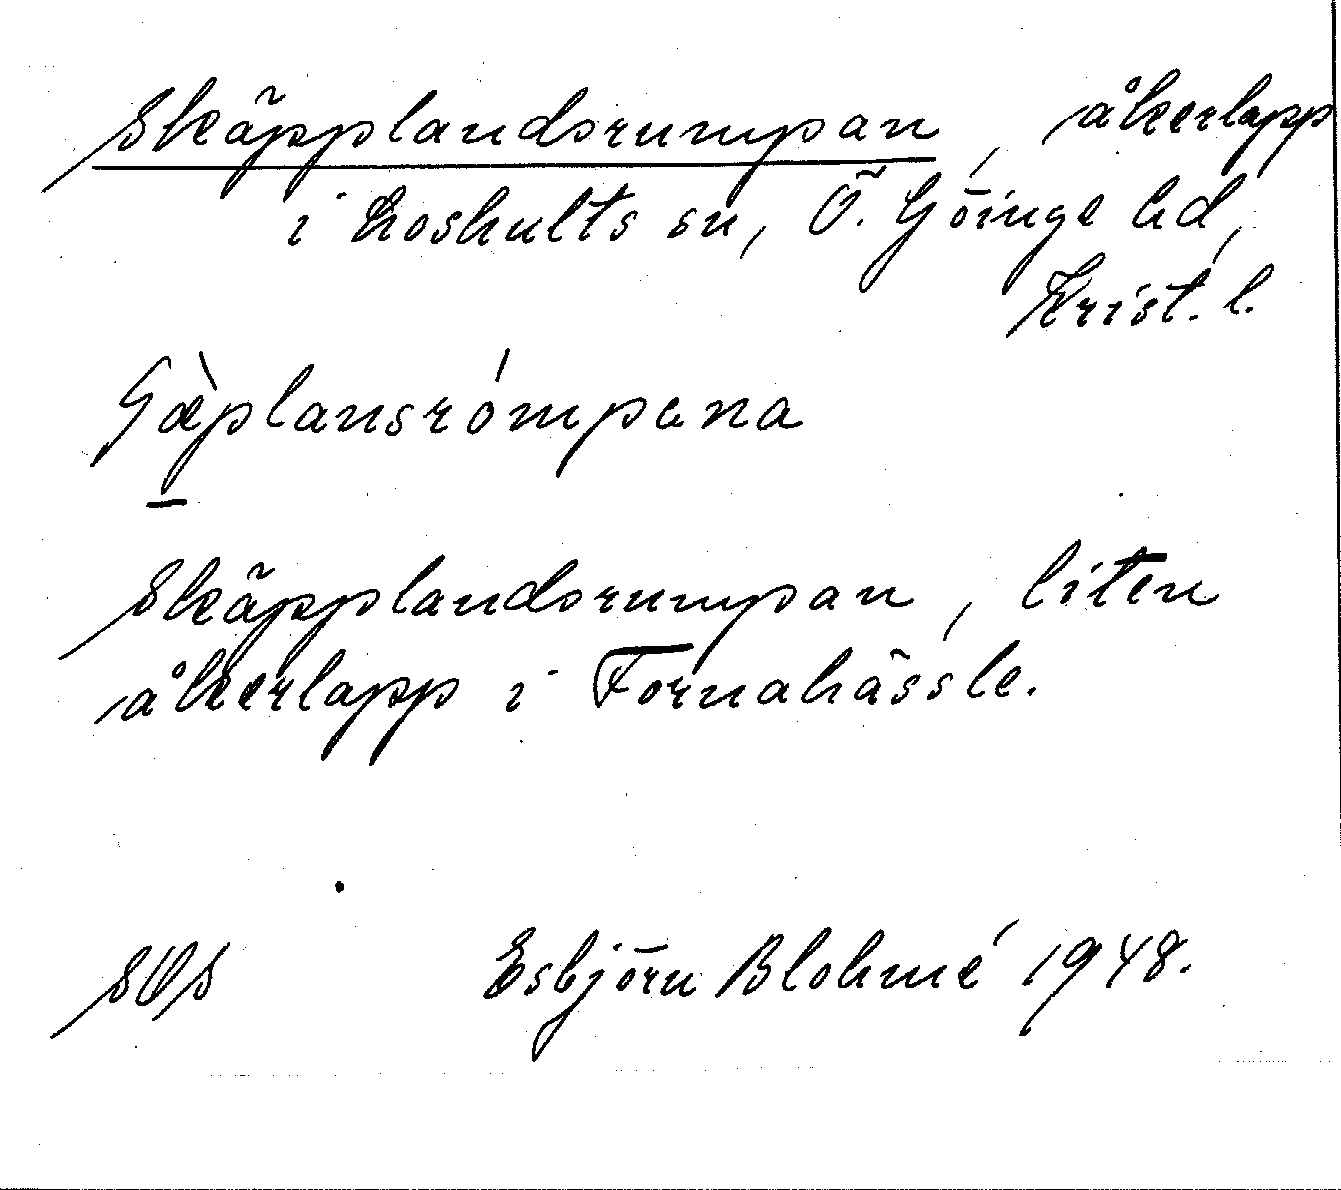 Skäpplandsrumpan, åkerlapp
i Loshults sn, Ö. Göinge hd,
Krist. l.
Gæ̀plansrómpana
Skäpplandsrumpan, liten
åkerlapp i Fornahässle.
SOS Esbjörn Blohmé 1948.